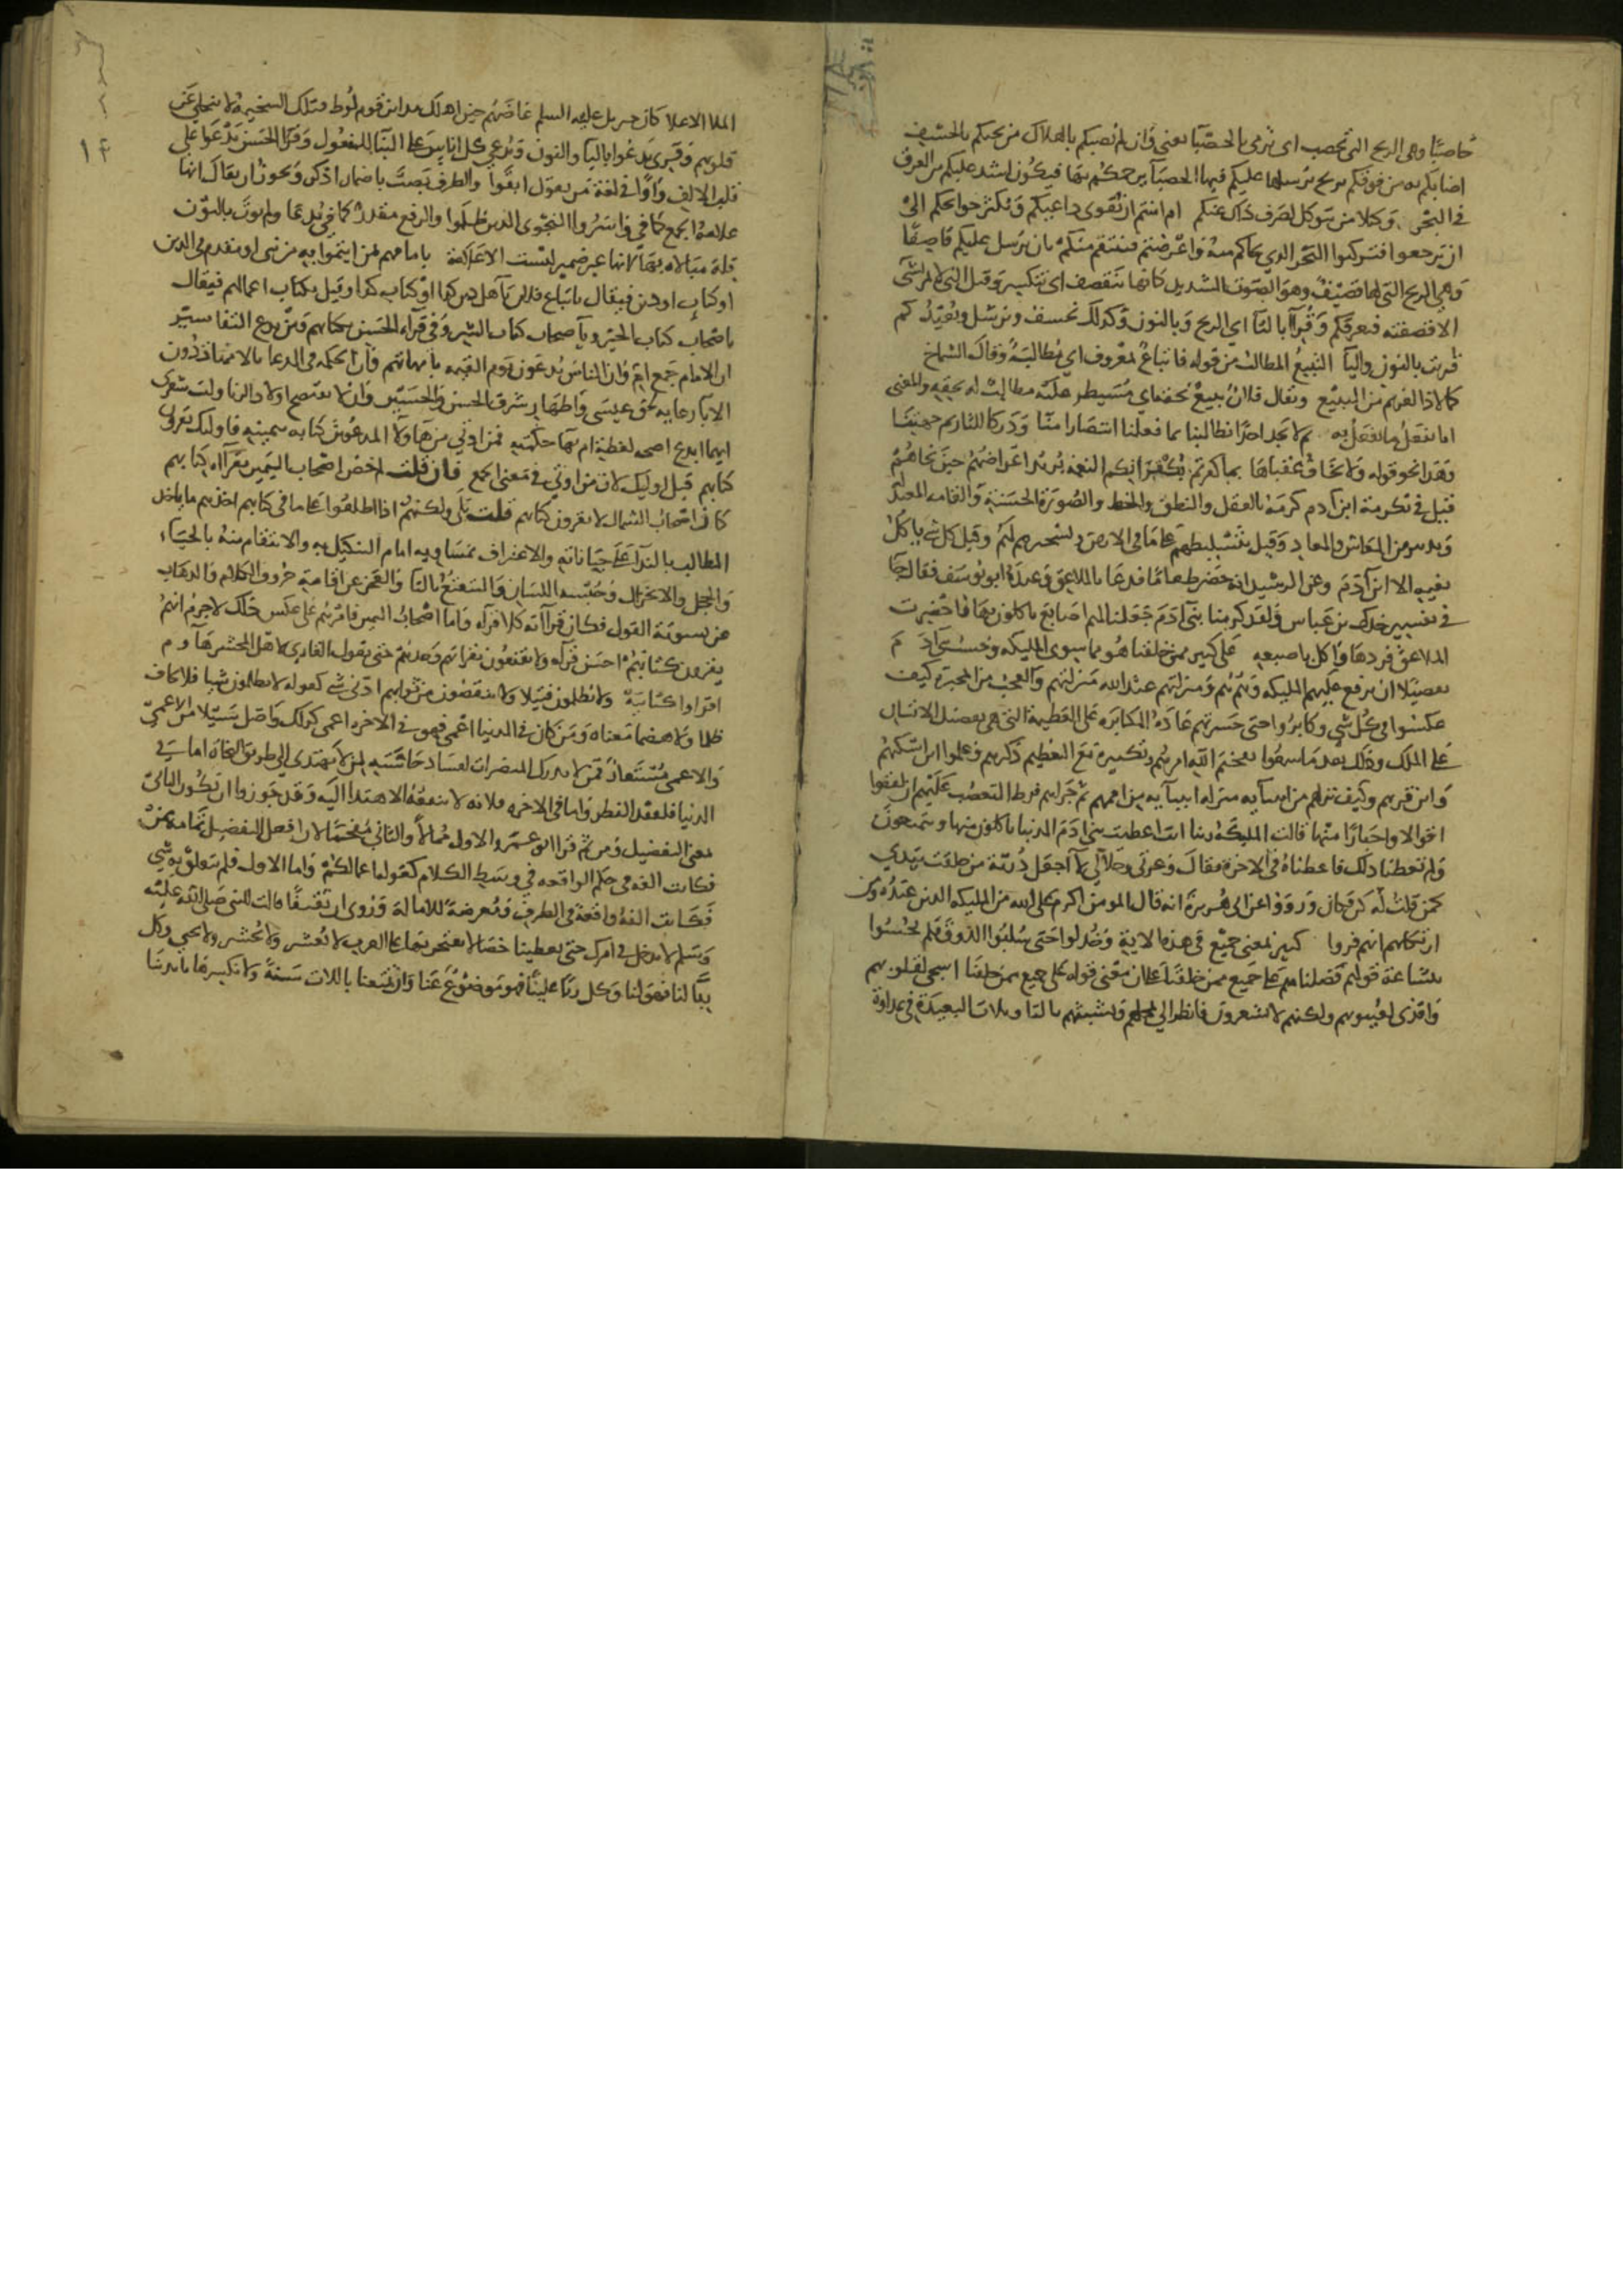 حاصبًا وهي الريح التي تحصب اى ترمى بالحصبآ يعنى وان لم يصبكم بالهلاك من تحتكم بالخسف
اصابكم به من فوقكم بريح يرسلها عليكم فيها الحصبآ يرجمكم بها فيكون اشد عليكم من الغرق
فى البحر وكيلا من يتوكل بصرف ذلك عنكم ام امنتم ان يقوى دواعيكم ويكثر حوائجكم الى
ان ترجعوا فتركبوا البحر الذي نجاكم منه فاعرضتم فينتقم منكم بان يرسل عليكم قاصفًا
وهي الريح التي لها قصيف وهو الصوت الشديد كانها تتقصف اى تتكسر وقيل التي لا تمر بشى
الا قصفته فيغرقكم وقرئ بالتا اي الريح وبالنون وكذلك نخسف ونرسل ونعيدكم
قرئت بالنون واليا التبيع المطالب من قوله فاتباع بالمعروف اي مطالبة وقال الشماخ
كما لاذ الغريم من التبيع ويقال فلان تبيع بحقه اي مسيطر عليه مطالب له بحقه والمعنى
انا نفعل ما نفعل بهم ثم لا تجد احدًا يطالبنا بما فعلنا انتصارا منا ودركا للثار من جهتنا
وهذا نحو قوله ولا يخاف عقباها بما كفرتم بكفرانكم النعمه يريد اعراضهم حين نجاهم
قيل فى تكرمة ابن آدم كرمه بالعقل والنطق والخط والصورة الحسنة والقامه المعتدلة
وتدبير امر المعاش والمعاد وقيل بتسليطهم على ما فى الارض وتسخيره لهم وقيل كل شى ياكل
بفيه الا ابن آدم وعن الرشيد انه حضر طعامًا فدعا بالملاعق وعنده ابو يوسف فقال جا
فى تفسير جدك بن عباس ولقد كرمنا بني آدم جعلنا لهم اصابع ياكلون بها فاحضرت
الملاعق فردها واكل باصبعه على كثير ممن خلقنا هو ما سوى المليكه وحسب بني آدم
تفضيلا ان ترفع عليهم المليكه وهم هم ومنزلتهم عند الله منزلتهم والعجب من المجبرة كيف
عكسوا فى كل شي وكابروا حتى جسرتهم عادة المكابره على العظيمة التي هى تفضيل الانسان
على الملك وذلك بعد ما سمعوا تفخيم الله امرهم وتكثيره مع التعظيم ذكرهم وعلموا اين اسكنهم
واين قربهم وكيف نزلهم من انبيآيه منزله انبيآيه من اممهم ثم جرهم فرط التعصب عليهم ان لفقوا
اقوالا واخبارًا منها قالت المليكه ربنا انك اعطيت بنى آدم الدنيا ياكلون منها ويتمتعون
ولم تعطنا ذلك فاعطناه فى الاخرة فقال وعزتى وجلالى لا اجعل ذرية من خلقت بيدي
كمن قلت له كن فكان ورووا عن ابى هريرة انه قال المومن اكرم على الله من المليكه الذين عنده ومن
ارتكابهم انهم فسروا كثير بمعنى جميع فى هذه الاية وخذلوا حتى سلبوا الذوق فلم يحسوا
ببشاعة قولهم فضلناهم على جميع ممن خلقنا على ان معنى قوله على جميع ممن خلقنا اشجى لحلوقهم
واقذى لعيونهم ولكنهم لا يشعرون فانظر الي تمحلهم وتشبثهم بالتاويلات البعيدة فى عداوة
١٤
الملا الاعلا كان جبريل عليه السلم غاضهم حين اهلك مداين قوم لوط فتلك السخيمه لا تنجلي عن
قلوبهم وقرئ يدعوا باليا والنون ويدعى كل اناس على البنآ للمفعول وقرآ الحسن يدعوا على
قلب الالف واوًا فى لغة من يقول افعوا والظرف نصب باضمار اذكر ويجوز ان يقال انها
علامة الجمع كما فى واسروا النجوى الذين ظلموا والرفع مقدر كما فى يدعى ولم يوت بالنون
قلة مبالاة بها لانها غير ضمير ليست الا علامة بامامهم بمن ايتموا به من نبى او مقدم فى الدين
او كتاب او دين فيقال يا تباع فلان يآ اهل دين كذا او كتاب كذا وقيل بكتاب اعمالهم فيقال
يا صحاب كتاب الخير ويآ صحاب كتاب الشر وفى قرآءة الحسن بكتابهم ومن بدع التفاسير
ان الامام جمع ام وان الناس يدعون يوم القيمه بامهاتهم وان الحكمه فى الدعا بالامهات دون
الابآ رعاية حق عيسى واظهار شرف الحسن والحسين وان لا يفتضح اولاد الزنا وليت شعرى
ايهما ابدع اصحه لفظه ام بهآ حكمته فمن اوتي من هآولآ المدعوين كتابه بيمينه فاوليك يقرون
كتابهم قيل اوليك لان من اوتي فى معنى الجمع فان قلت لم خص اصحاب اليمين بقرآة كتابهم
كان اصحاب الشمال لا يقرون كتابهم قلت بلى ولكنهم اذا اطلعوا على ما فى كتابهم اخذهم ما ياخذ
المطالب بالندآ على جناياته والاعتراف بمساويه امام التنكيل به والانتقام منه بالحيآء
والخجل والانخزال وحبسة اللسان والتتعتع بالتا والعجز عن اقامة حروف الكلام والذهاب
عن تسوية القول فكان قرآتهم كلا قرآه واما اصحاب اليمين فامرهم على عكس ذلك لا جرم انهم
يقرون كتابهم احسن قرآه ولا يقنعون بقرآتهم وحدهم حتى يقول القاري لاهل المحشر هآوم
اقراوا كتابيه ولا يظلمون فتيلا ولا ينقصون من ثوابهم ادنى شى كقوله لا يظلمون شيا فلا يخاف
ظلما ولا هضما معناه ومن كان فى الدنيا اعمى فهو فى الاخره اعمى كذلك واضل سبيلا من الاعمى
والاعمى مستعار ممن لا يدرك المبصرات لفساد حاسته لمن لا يهتدى الى طريق النجاة اما فى
الدنيا فلفقد النظر واما فى الاخره فلانه لا ينفعه الاهتدا اليه وقد جوزوا ان يكون الثاني
بمعنى التفضيل ومن ثم قرآ ابو عمرو الاول ممالا والثاني مفخما لان افعل التفضيل تمامه بمن
فكانت الفه فى حكم الواقعه في وسط الكلام كقولك اعمالكم واما الاول فلم يتعلق به شي
فكانت الفه واقعة فى الطرف ومعرضة للامالة وروى ان ثقيفًا قالت للنبى صلى الله عليه
وسلم لا ندخل فى امرك حتى تعطينا خصالا نفتخر بها على العرب لا نعشر ولا نحشر ولا نجبي وكل
ربًا لنا فهو لنا وكل ربًا علينا فهو موضوع عنا وان تمتعنا باللات سنة ولا نكسرها بايدينا